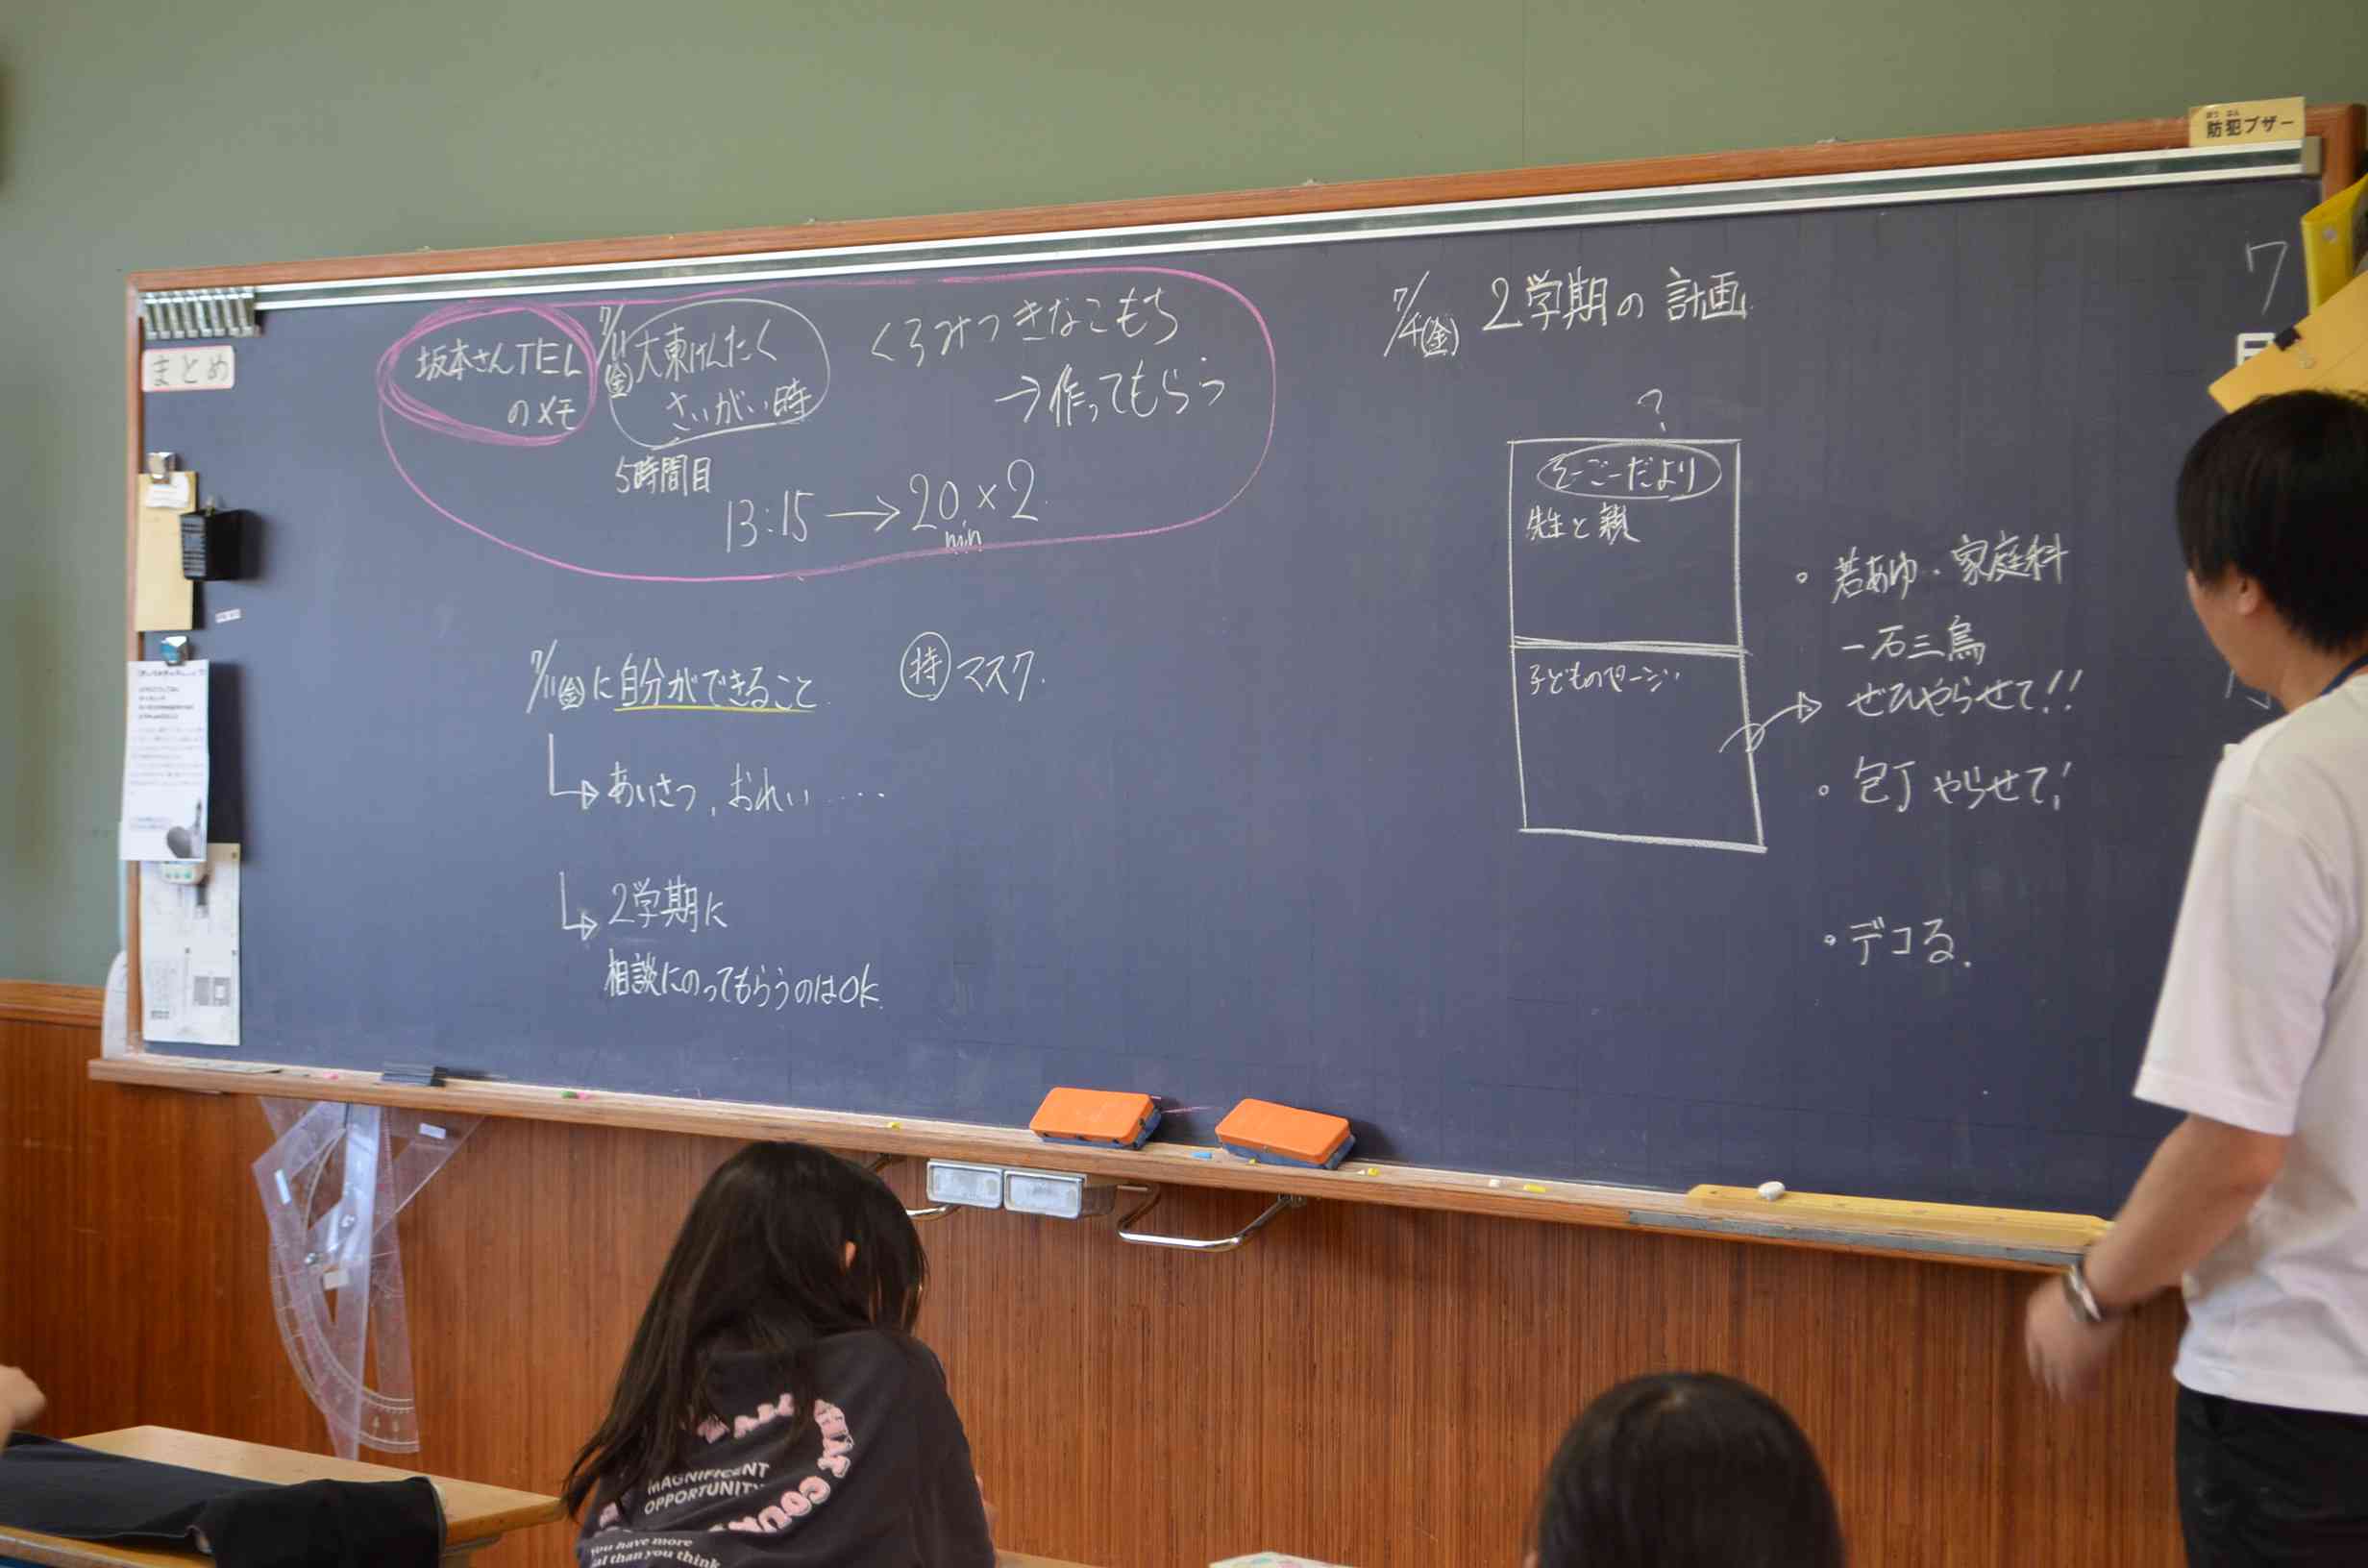 防犯ブザー
まとめ
坂本さんTEL
のメモ
7/11(金)
大東けんたく
さいがい時
くろみつきなこもち
→作ってもらう
5時間目
13:15→20×2
min
7/11(金)に自分ができること
持 マスク.
あいさつ,おれい……
2学期に
相談にのってもらうのはOK.
7/4(金) 2学期の計画
?
そーごーだより
先生と親
子どものページ
・若あゆ・家庭科
一石三鳥
ぜひやらせて!!
・包丁やらせて!
・デコる.
7
月
MAGNIFICENT
OPPORTUNITY
You have more
than you think